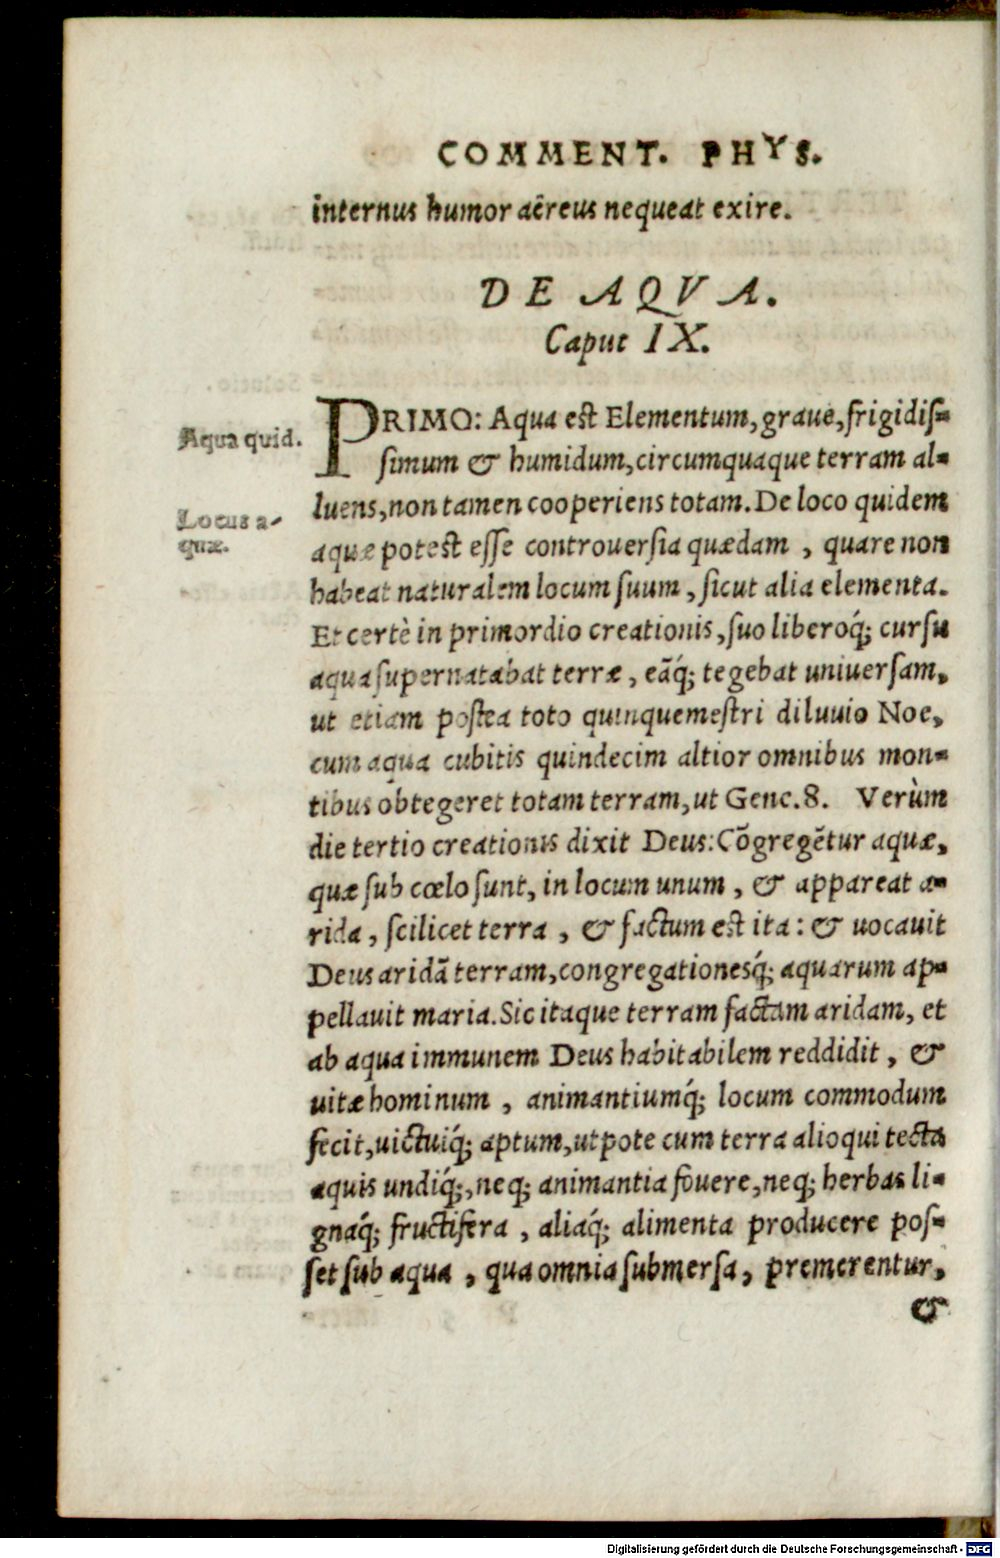 COMMENT. PHYS.
internus humor aëreus nequeat exire.
DE AQVA.
Caput IX.
Aqua quid.
PRIMO: Aqua est Elementum, graue, frigidis-
simum & humidum, circumquaque terram al-
luens, non tamen cooperiens totam. De loco quidem
Locus a-
quæ.
aquæ potest esse controuersia quædam, quare non
habeat naturalem locum suum, sicut alia elementa.
Et certè in primordio creationis, suo liberoq́; cursu
aqua supernatabat terræ, eāq́; tegebat uniuersam,
ut etiam postea toto quinquemestri diluuio Noe,
cum aqua cubitis quindecim altior omnibus mon-
tibus obtegeret totam terram, ut Gene. 8. Verùm
die tertio creationis dixit Deus: Cōgregētur aquæ,
quæ sub cœlo sunt, in locum unum, & appareat a-
rida, scilicet terra, & factum est ita: & uocauit
Deus aridā terram, congregationesq́; aquarum ap-
pellauit maria. Sic itaque terram factam aridam, et
ab aqua immunem Deus habitabilem reddidit, &
uitæ hominum, animantiumq́; locum commodum
fecit, uictuiq́; aptum, utpote cum terra alioqui tecta
aquis undiq́;, neq; animantia fouere, neq; herbas li-
gnaq́; fructifera, aliaq́; alimenta producere pos-
set sub aqua, qua omnia submersa, premerentur,
&
Digitalisierung gefördert durch die Deutsche Forschungsgemeinschaft - DFG